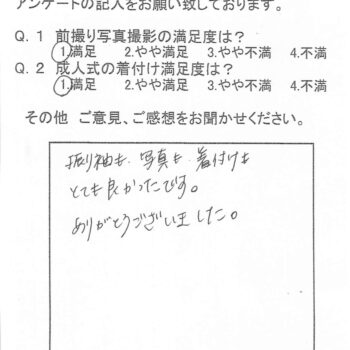 アンケートの記入をお願い致しております。
Q.1 前撮り写真撮影の満足度は？
1.満足 2.やや満足 3.やや不満 4.不満
Q.2 成人式の着付け満足度は？
1.満足 2.やや満足 3.やや不満 4.不満
その他 ご意見、ご感想をお聞かせください。
振り袖も、写真も、着付けも
とても良かったです。
ありがとうございました。